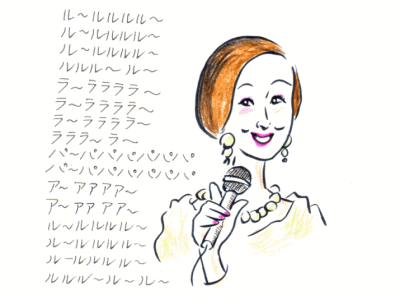 ル～ルルルル～
ル～ルルルル～
ル～ルルルル～
ルルル～ル～
ラ～ララララ～
ラ～ララララ～
ラ～ララララ～
ラララ～ラ～
パ～パパパパパパ
パ～パパパパパパ
ア～アアアア～
ア～アアアア～
ル～ルルルル～
ル～ルルルル～
ル～ルルルル～
ルルル～ル～ル～